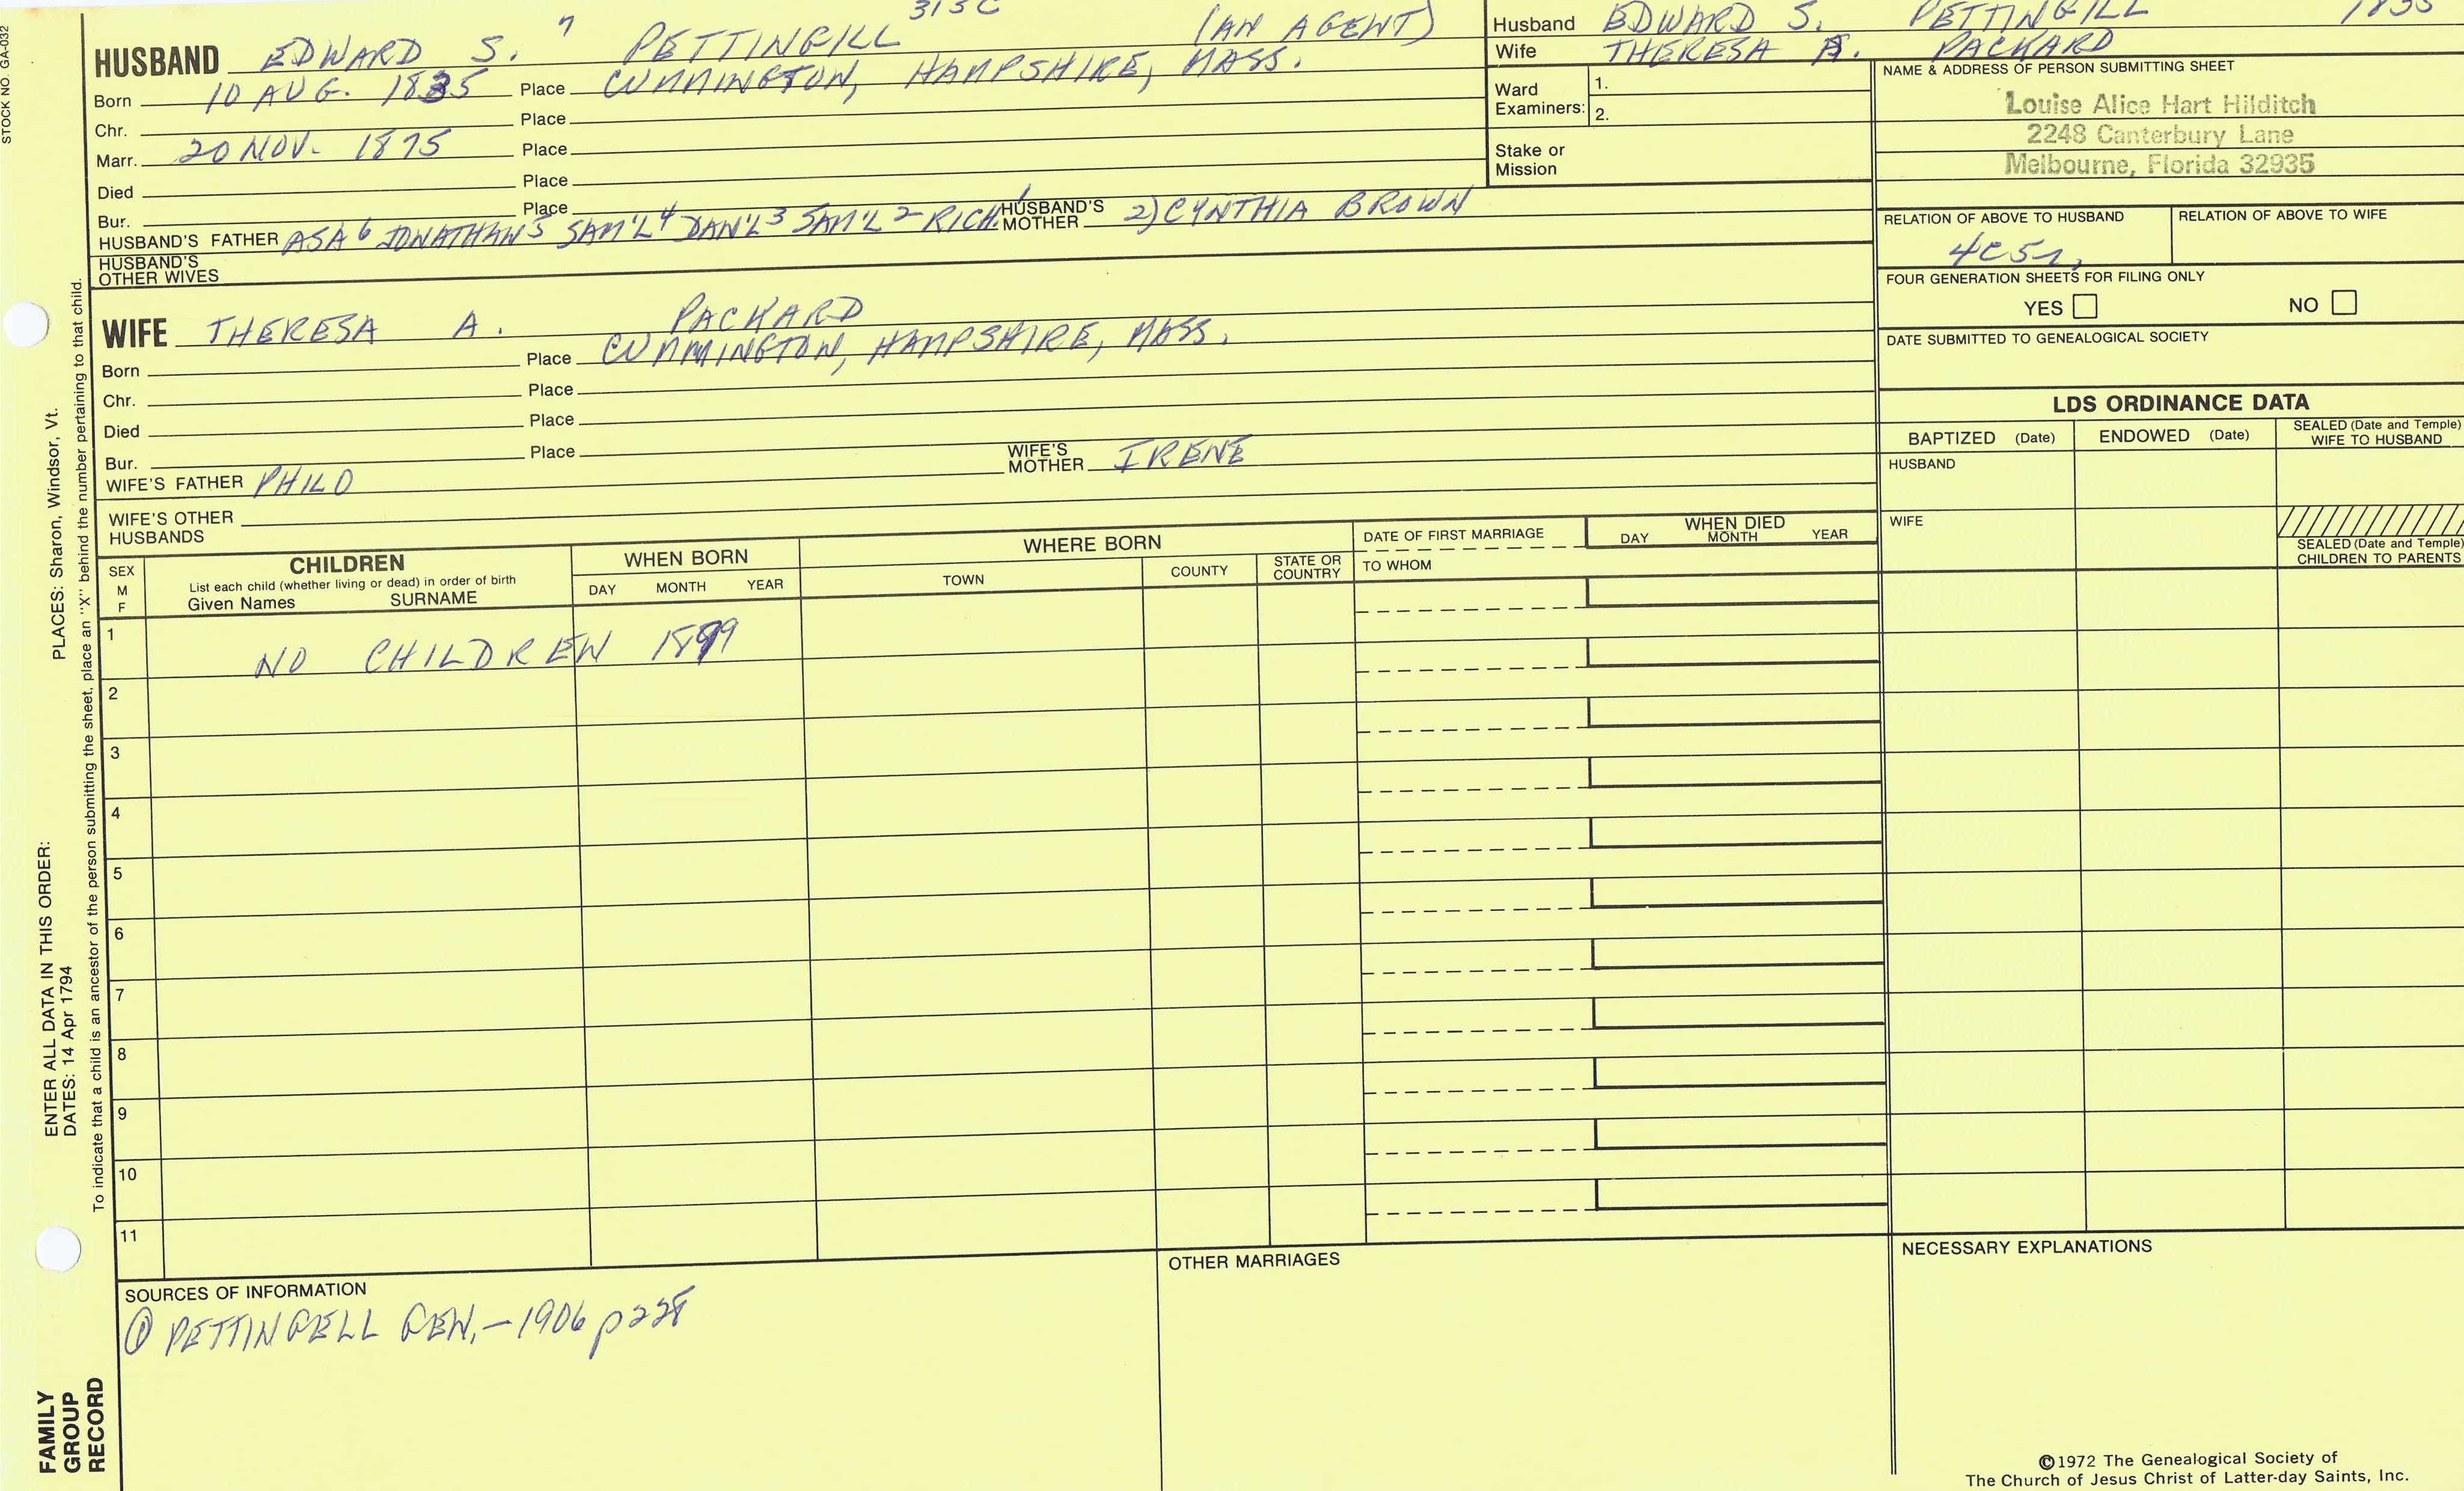 STOCK NO. GA-032
313C
HUSBAND EDWARD S. 7 PETTINGILL (AN AGENT)
Born 10 AUG. 1835 Place CUMMINGTON, HAMPSHIRE, MASS.
Chr. Place
Marr. 20 NOV. 1875 Place
Died Place
Bur. Place
HUSBAND'S FATHER ASA 6 JONATHAN 5 SAM'L 4 DAN'L 3 SAM'L 2 - RICH. 1 HUSBAND'S MOTHER 2) CYNTHIA BROWN
HUSBAND'S
OTHER WIVES
WIFE THERESA A. PACKARD
Born Place CUMMINGTON, HAMPSHIRE, MASS.
Chr. Place
Died Place
Bur. Place
WIFE'S FATHER PHILO WIFE'S MOTHER IRENE
WIFE'S OTHER
HUSBANDS
Husband EDWARD S. PETTINGILL 1835
Wife THERESA A. PACKARD
Ward Examiners: 1.
2.
Stake or
Mission
NAME & ADDRESS OF PERSON SUBMITTING SHEET
Louise Alice Hart Hilditch
2248 Canterbury Lane
Melbourne, Florida 32935
RELATION OF ABOVE TO HUSBAND RELATION OF ABOVE TO WIFE
4C5r,
FOUR GENERATION SHEETS FOR FILING ONLY
YES NO
DATE SUBMITTED TO GENEALOGICAL SOCIETY
LDS ORDINANCE DATA
BAPTIZED (Date) ENDOWED (Date) SEALED (Date and Temple) WIFE TO HUSBAND
HUSBAND
WIFE
SEALED (Date and Temple)
CHILDREN TO PARENTS
SEX
M
F
CHILDREN
List each child (whether living or dead) in order of birth
Given Names SURNAME
WHEN BORN
DAY MONTH YEAR
WHERE BORN
TOWN COUNTY STATE OR COUNTRY
DATE OF FIRST MARRIAGE
TO WHOM
WHEN DIED
DAY MONTH YEAR
1 NO CHILDREN 1899
2
3
4
5
6
7
8
9
10
11
SOURCES OF INFORMATION
① PETTINGELL GEN, - 1906 p228
OTHER MARRIAGES
NECESSARY EXPLANATIONS
©1972 The Genealogical Society of
The Church of Jesus Christ of Latter-day Saints, Inc.
PLACES: Sharon, Windsor, Vt.
ENTER ALL DATA IN THIS ORDER:
DATES: 14 Apr 1794
To indicate that a child is an ancestor of the person submitting the sheet, place an "X" behind the number pertaining to that child.
FAMILY
GROUP
RECORD